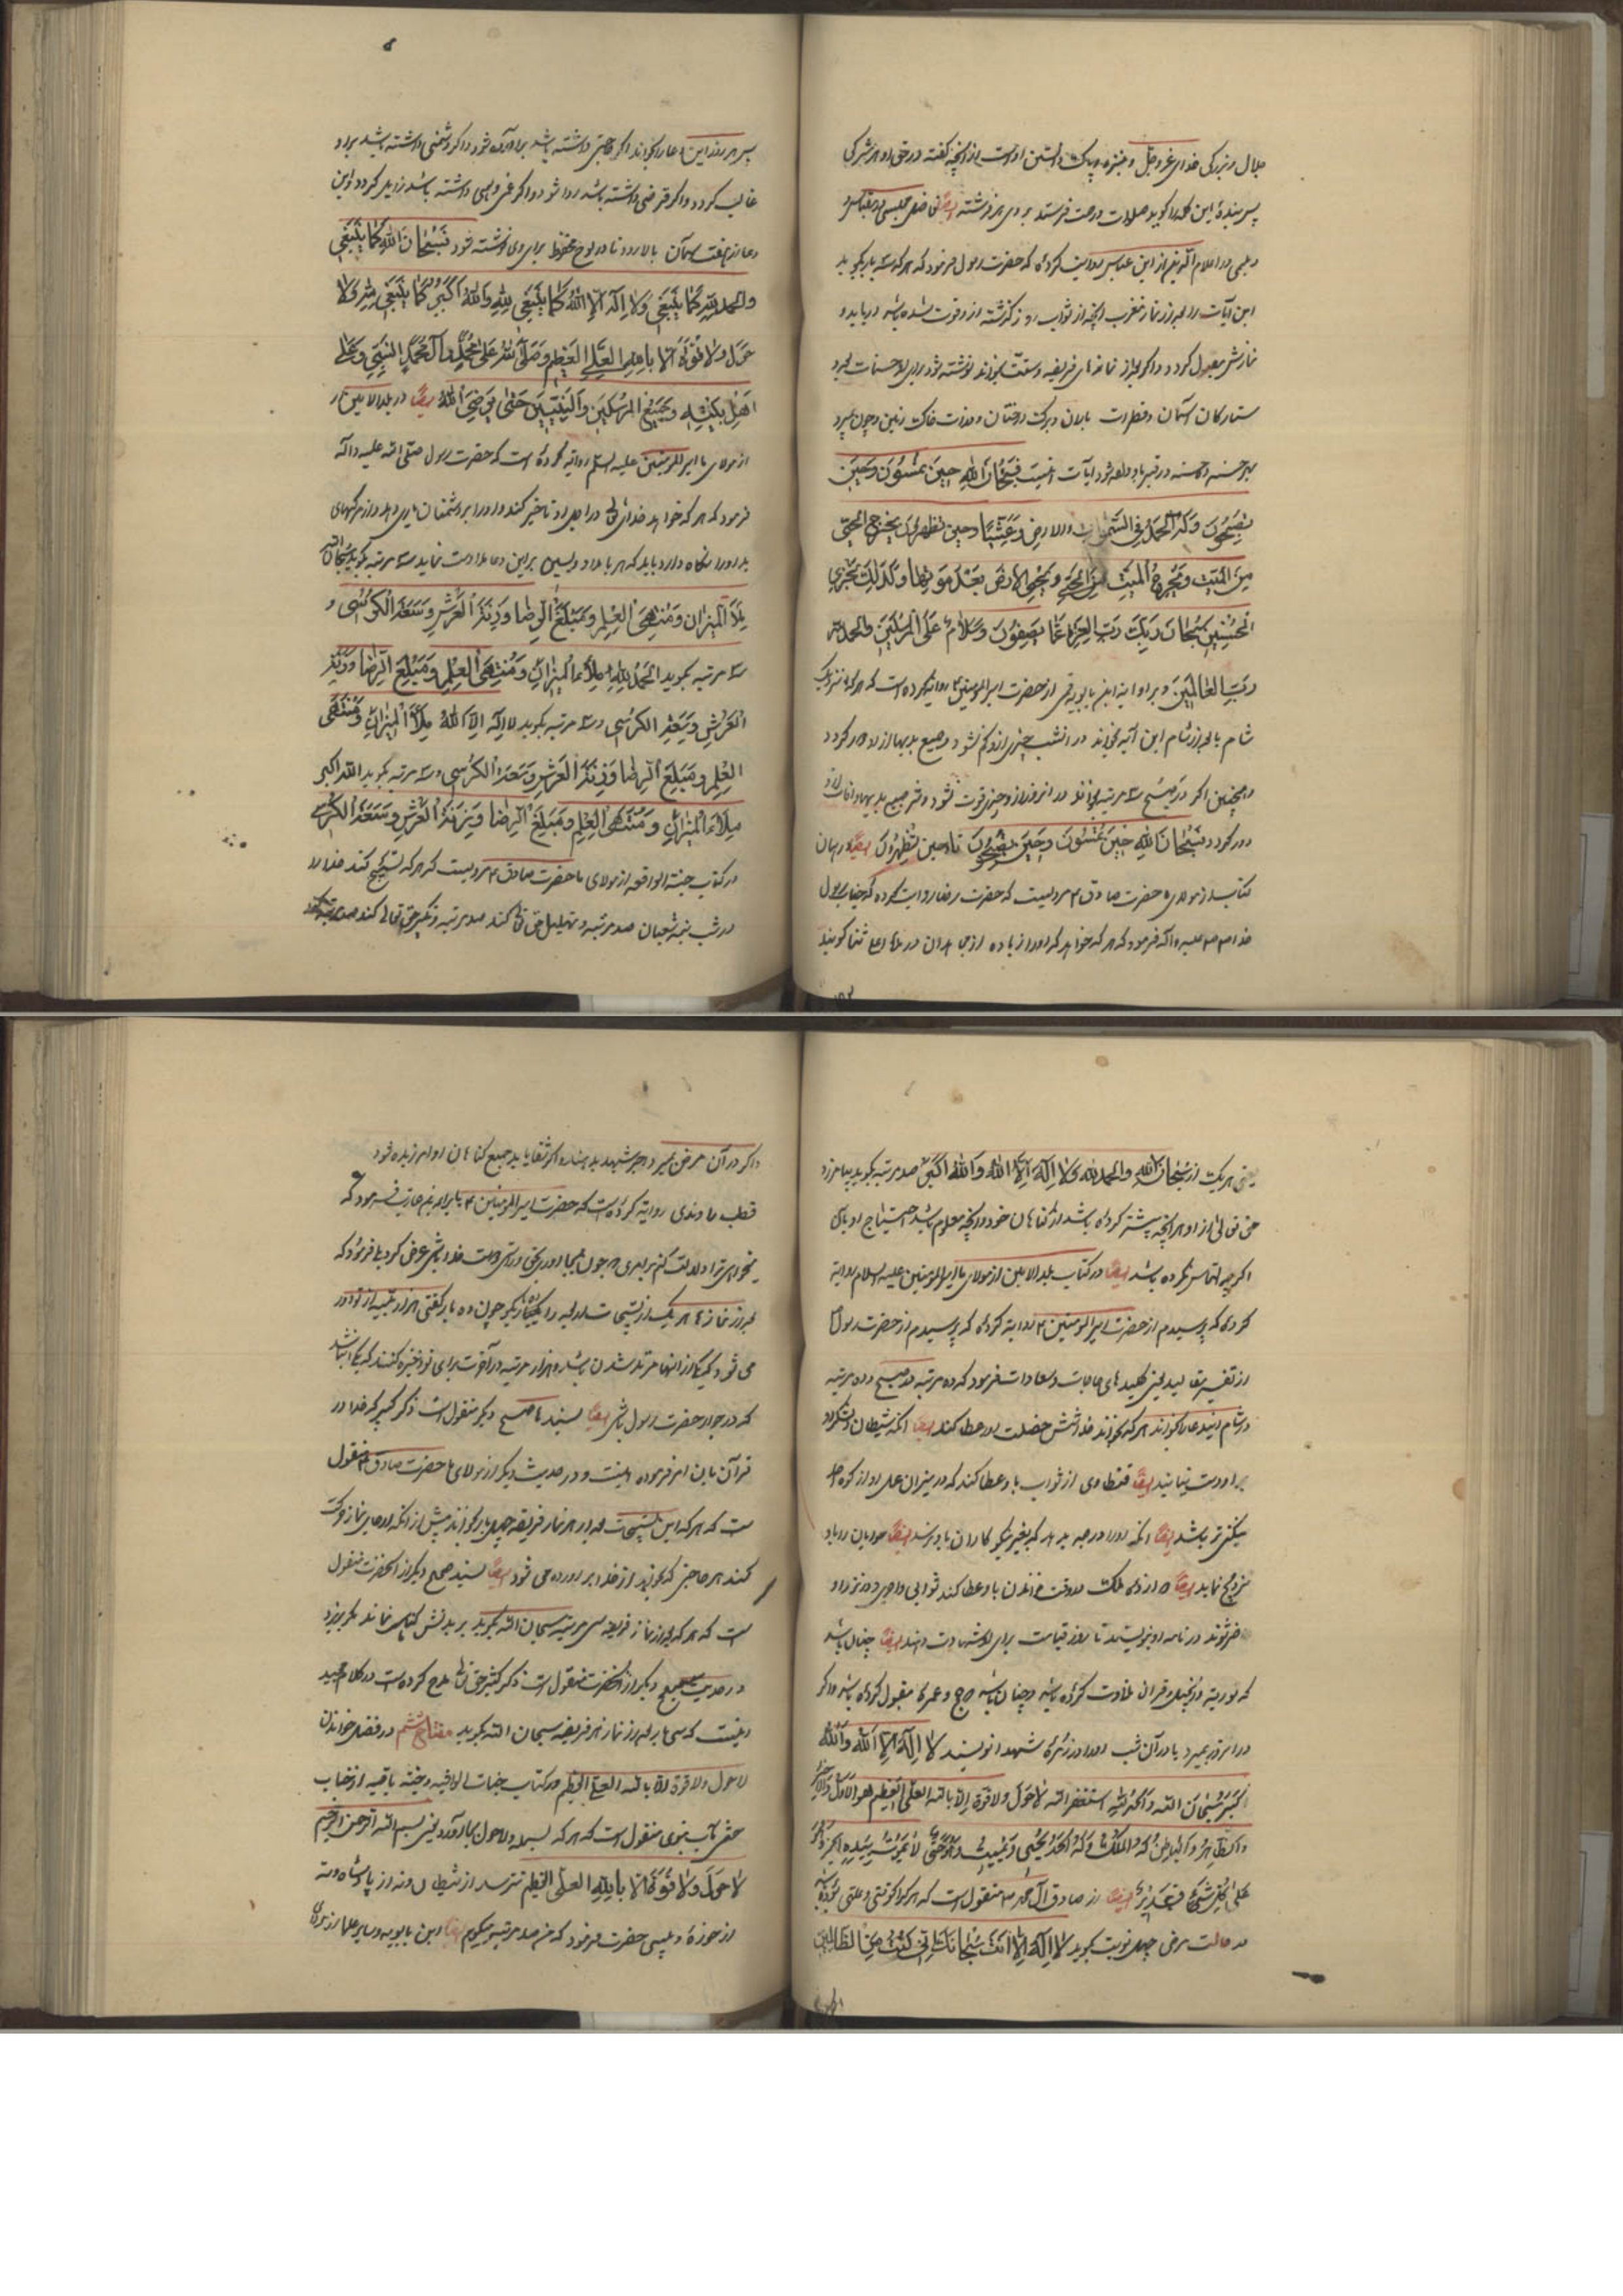 جلال و بزرکی خدای عز و جل و منزه و پاک دانستن اوست از آنچه کفته در حق او هر مشرکی
پس بنده این کلمه را کوید صلوات و رحمت فرستد بروی هر فرشته ایضا
دیلمی در اعلام الدین از ابن عباس روایت کرده که حضرت رسول فرمود که هر که سه بار بکوید
این آیات را بعد از نماز مغرب آنچه از ثواب روز کذشته از او فوت شده باشد دریابد و
نمازش مقبول کردد و اکر بعد از نمازهای فریضه و سنت بخواند نوشته شود برای او حسنات بعدد
ستارکان آسمان و قطرات باران و برک درختان و ذرات خاک زمین و چون بمیرد
بهر حسنه ده حسنه در قبر باو داده شود آیات اینست فَسُبْحَانَ اللّٰهِ حِينَ تُمْسُونَ وَحِينَ
تُصْبِحُونَ وَلَهُ الْحَمْدُ فِي السَّمٰوَاتِ والارض وَعَشِيًّا وحين تظهرون يخرج الحيّ
مِنَ الْمَيِّتِ وَيُخْرِجُ الْمَيِّتَ مِنَ الْحَيِّ وَيُحْيِي الارض بَعْدَ مَوْتِهَا وَكَذٰلِكَ نَجْزِي
الْمُحْسِنِينَ سُبْحَانَ رَبِّكَ رَبِّ الْعِزَّةِ عَمَّا يَصِفُونَ وَسَلَامٌ عَلَى الْمُرْسَلِينَ والحمد لله
رَبِّ الْعَالَمِينَ و بروایة ابن بابویه قمی از حضرت امیرالمؤمنین روایة کرده است که هر که نزدیک
شام یا بعد از شام این آیه بخواند در آنشب چیزی از او کم نشود و جمیع بدیها از او دور کردد
و همچنین اکر در صبح سه مرتبه بخواند در آنروز از او چیزی فوت نشود و شر جمیع بدیها و آفات از او
دور کردد فَسُبْحَانَ اللّٰهِ حِينَ تُمْسُونَ وَحِينَ تُصْبِحُونَ تا وحين تُظْهِرُونَ ایضا در همان
کتاب از مولای ما حضرت صادق ع مرویست که حضرت رضا روایت کرده که جناب رسول
خدا صلی الله علیه و آله فرمود که هر که خواهد که او را زیاده از همه
پس هر روز این دعا را بخواند اکر حاجتی داشته باشد برآورده شود و اکر دشمنی داشته باشد بر او
غالب کردد و اکر قرضی داشته باشد ادا شود و اکر غمی و همی داشته باشد زایل کردد و این
دعا از هفت آسمان بالا رود تا در لوح محفوظ برای وی نوشته شود فَسُبْحَانَ اللّٰهِ كَمَا يَنْبَغِي
والحمد لله كَمَا يَنْبَغِي وَلَا اِلٰهَ اِلَّا اللّٰهُ كَمَا يَنْبَغِي لِلّٰهِ وَاللّٰهُ اَكْبَرُ كَمَا يَنْبَغِي لِلّٰهِ وَلَا
حَوْلَ وَلَا قُوَّةَ اِلَّا بِاللّٰهِ الْعَلِيِّ الْعَظِيمِ وَصَلَّى اللّٰهُ عَلَى مُحَمَّدٍ وَآلِ مُحَمَّدٍ النَّبِيِّ وَعَلَى
اَهْلِ بَيْتِهِ وَجَمِيعِ الْمُرْسَلِينَ وَالنَّبِيِّينَ حَتَّى يَرْضَى اللّٰهُ ایضا در بلد الامین
از مولای ما امیرالمؤمنین علیه السلم روایة کرده است که حضرت رسول صلی الله علیه و آله
فرمود که هر که خواهد خدای تعالی در اجل او تاخیر کند و او را بر دشمنان یاری دهد و از مرکهای
بد او را نکاه دارد باید که هر بامداد و پسین بر این دعا مداومت نماید سه مرتبه بکوید سُبْحَانَ اللّٰهِ
مِلْأَ الْمِيزَانِ وَمُنْتَهَى الْعِلْمِ وَمَبْلَغَ الرِّضَا وَزِنَةَ الْعَرْشِ وَسَعَةَ الْكُرْسِيِّ و
سه مرتبه بکوید الحَمْدُ لِلّٰهِ مِلْأَ الْمِيزَانِ وَمُنْتَهَى الْعِلْمِ وَمَبْلَغَ الرِّضَا وَزِنَةَ
الْعَرْشِ وَسَعَةَ الكرسي و سه مرتبه بکوید لا اِلٰهَ اِلَّا اللّٰهُ مِلْأَ الْمِيزَانِ وَمُنْتَهَى
الْعِلْمِ وَمَبْلَغَ الرِّضَا وَزِنَةَ الْعَرْشِ وَسَعَةَ الْكُرْسِي و سه مرتبه بکوید الله اکبر
مِلْأَ الْمِيزَانِ وَمُنْتَهَى الْعِلْمِ وَمَبْلَغَ الرِّضَا وَزِنَةَ الْعَرْشِ وَسَعَةَ الْكُرْسِيِّ
در کتاب جنة الواقیه از مولای ما حضرت صادق ع مرویست که هر که تسبیح کند خدا را
در شب نیمه شعبان صد مرتبه و تهلیل حق تعالی کند صد مرتبه و تکبیر حق تعالی کند صد مرتبه
یعنی هر یک از سُبْحَانَ اللّٰهِ والحمد لله وَلَا اِلٰهَ اِلَّا اللّٰهُ وَاللّٰهُ اَكْبَرُ صد مرتبه بکوید بیامرزد
حق تعالی از او هر آنچه پیشتر کرده باشد از کناهان خود و آنچه معلوم باشد احتیاج او بآن
اکرچه التماس نکرده باشد ایضا در کتاب بلد الامین از مولای ما امیرالمؤمنین علیه السلام روایة
کرده که پرسیدم از حضرت امیرالمؤمنین روایة کرده که پرسیدم از حضرت رسول
از تفسیر مقالید یعنی کلیدهای حاجات و سعادات فرمود که ده مرتبه در صبح و ده مرتبه
در شام این دعا را بخواند هر که بخواند خدا شش خصلت او را عطا کند ایضا آنکه شیطان و لشکر او
بر او دست نیابند ایضا قنطاری از ثواب باو عطا کند که در میزان عمل او از کوه احد
سنکین تر باشد ایضا آنکه او را درجه بدهد که بغیر نیکوکاران باو نرسند ایضا حوریان را باو
تزویج نماید ایضا دوازده ملک در وقت خواندن
حاضر شوند در نامه او بنویسند تا روز قیامت برای او شهادت دهند ایضا چنان باشد
که توریة و انجیل و قرآن تلاوت کرده باشد و چنان باشد که حج و عمره مقبول کرده باشد و اکر
در آنروز بمیرد یا در آن شب او را در زمره شهدا نویسند لا اِلٰهَ اِلَّا اللّٰهُ وَاللّٰهُ
اَكْبَرُ وَسُبْحَانَ الله وَالْحَمْدُ لِلّٰهِ استغفر الله لا حَوْلَ ولا قوة اِلّا بالله العلي العظيم هو الاَوَّلُ وَالْآخِرُ
وَالظَّاهِرُ وَالْبَاطِنُ لَهُ الْمُلْكُ وَلَهُ الْحَمْدُ يُحْيِي وَيُمِيتُ وَهُوَ حَيٌّ لَا يَمُوتُ بِيَدِهِ الْخَيْرُ وَهُوَ
عَلَى كُلِّ شَيْءٍ قَدِيرٌ ایضا از صادق آل محمد ص منقول است که هر که را کوفتی و علتی بوده باشد
در حالت مرض چهل نوبت بکوید لا اِلٰهَ اِلَّا اَنْتَ سُبْحَانَكَ اِنِّي كُنْتُ مِنَ الظَّالِمِينَ
و اکر در آن مرض بمیرد اجر شهید بدهند و اکر شفا یابد جمیع کناهان او آمرزیده شود
قطب راوندی روایة کرده است که حضرت امیرالمؤمنین ع فرمود که
میخواهی ترا دلالت کنم بر امری که چون بجا آوری بحق و راستی دوست خدا باشی عرض کرد بلی فرمود که
بعد از نمازها هر یک از تسبیحات اربعه را
می شود
که در جوار حضرت رسول باشی ایضا بسند صحیح دیکر منقول است ذکر کبیر که خدا در
قرآن بآن امر فرموده اینست و در حدیث دیکر از مولای ما حضرت صادق ع منقول
است که هر که این تسبیحات بعد از هر نماز فریضه چهل بار بخواند پیش از آنکه از جای نماز حرکت
کند هر حاجتی که بخواهد از خدا برآورده می شود ایضا بسند صحیح دیکر از آنحضرت منقول
است که هر که بعد از نماز فریضه سی مرتبه سبحان الله بکوید بر بدنش کناهی نماند مکر بریزد
در حدیث صحیح دیکر از آنحضرت منقول است ذکر کثیر حق تعالی مدح کرده است در کلام مجید
اینست که سی بار بعد از نماز هر فریضه سبحان الله بکوید مفتاح ششم در فضل خواندن
لاحول ولا قوة الا بالله العلي العظيم در کتاب جنات الواقیه و جنة باقیه از جناب
نبوی منقول است که هر که بسمله و لاحول بجا آورد یعنی بسم الله الرحمن الرحیم
لَا حَوْلَ وَلَا قُوَّةَ اِلَّا بِاللّٰهِ العلي العظيم نترسد از شیطان و نه از پادشاه و نه
از خوره و پیسی حضرت فرمود که من صد مرتبه میکویم ایضا ابن بابویه و سایر علما از مولای